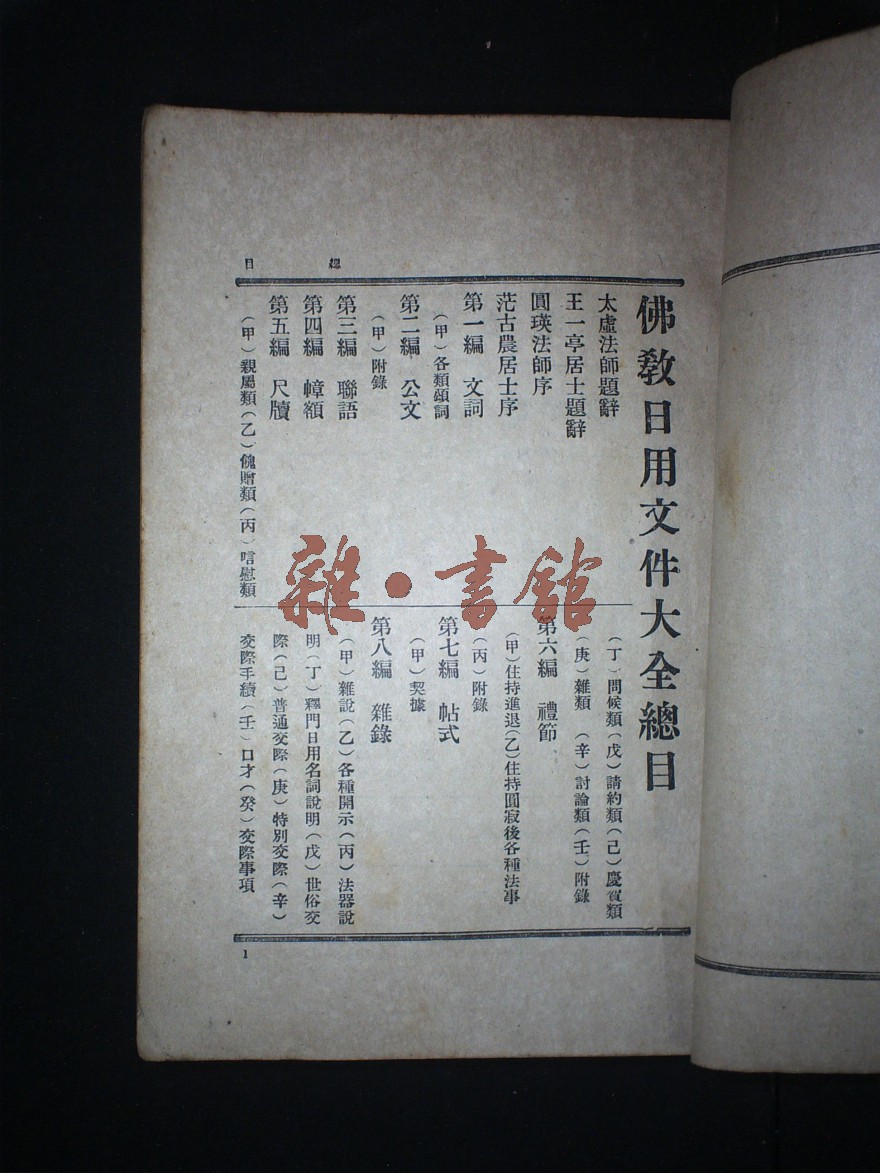 佛教日用文件大全總目
太虛法師題辭
王一亭居士題辭
圓瑛法師序
范古農居士序
第一編　文詞
（甲）各類頌詞
第二編　公文
（甲）附錄
第三編　聯語
第四編　幛額
第五編　尺牘
（甲）親屬類（乙）餽贈類（丙）唁慰類
（丁）問候類（戊）請約類（己）慶賀類
（庚）雜類　（辛）討論類（壬）附錄
第六編　禮節
（甲）住持進退（乙）住持圓寂後各種法事
（丙）附錄
第七編　帖式
（甲）契據
第八編　雜錄
（甲）雜說（乙）各種開示（丙）法器說
明（丁）釋門日用名詞說明（戊）世俗交
際（己）普通交際（庚）特別交際（辛）
交際手續（壬）口才（癸）交際事項
總目
1
雜·書館